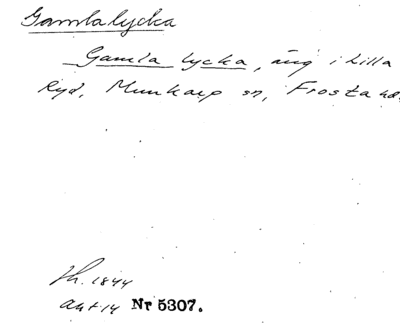 Gamlalycka
Gamla lycka, äng i Lilla
Ryd, Munkarp sn, Frosta hd.
1844
akt 14 Nr 5307.